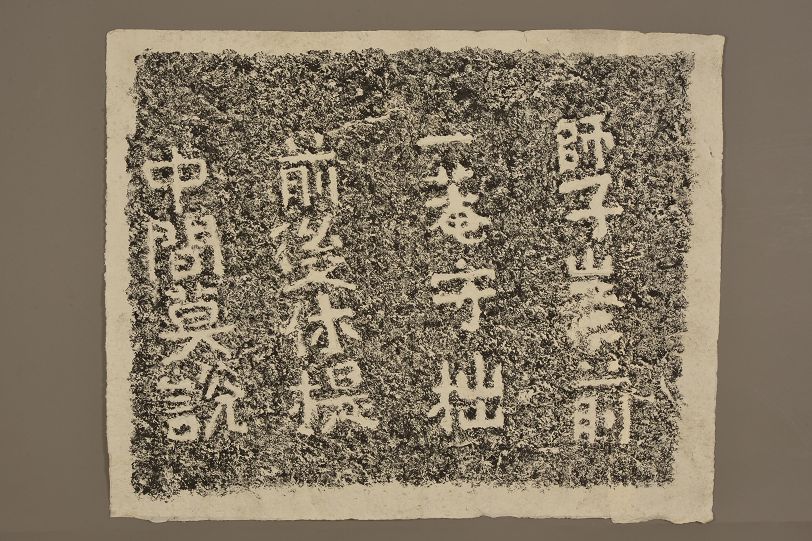 師子前
一菴守拙
前後休提
中間莫說